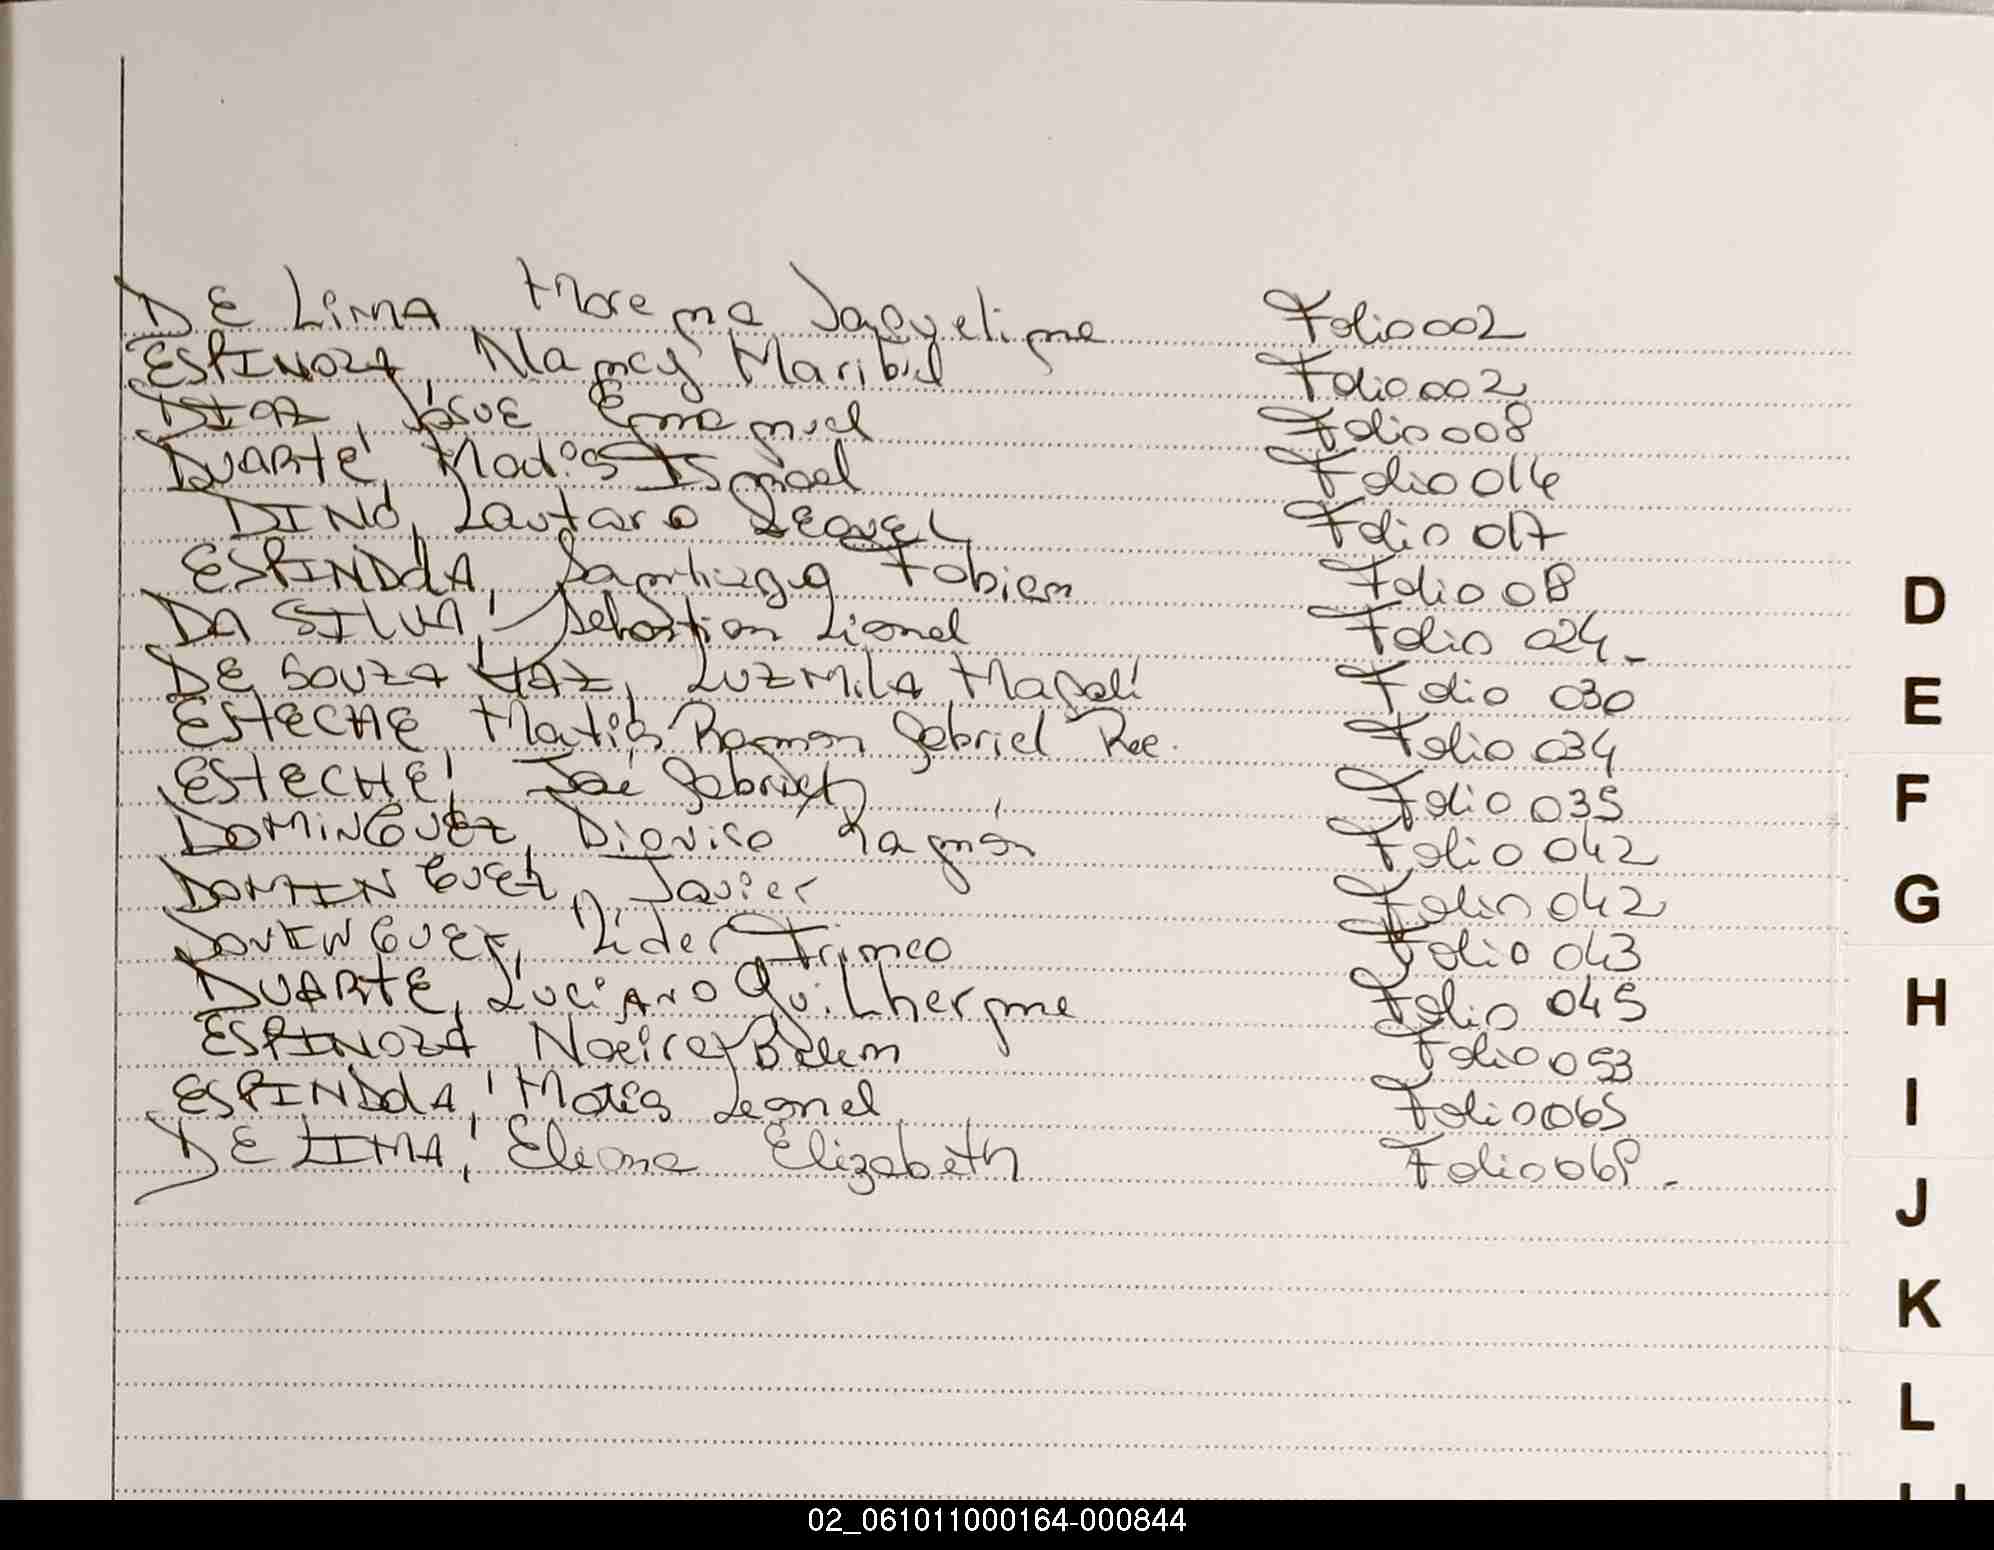 DE LiMA Morena Jaqueline Folio 002
ESPINOZA, Nancy Maribel Folio 002
DIAZ, JOSUE Emanuel Folio 008
DUARTE, Matias Ismael Folio 016
DINO, Lautaro LEONEL Folio 017
ESPINDOLA, Santiago Fabian Folio 08
DA SILVA, Sebastian Lionel Folio 024.
DE SOUZA VAZ, LUZMILA Magali Folio 030
ESTECHE, Matias Ramon Gabriel Rec. Folio 034
ESTECHE, José Gabriel Folio 035
DOMINGUEZ, Dioniso Ramón Folio 042
DOMINGUEZ, Javier Folio 042
DOMINGUEZ, Lider Folio 043
DUARTE, LUCiANO Guilherme Folio 045
ESPINOZA Belem Folio 053
ESPINDOLA, Matias Leonel Folio 065
DE LIMA, Eliana Elizabeth Folio
D
E
F
G
H
I
J
K
L
02_061011000164-000844